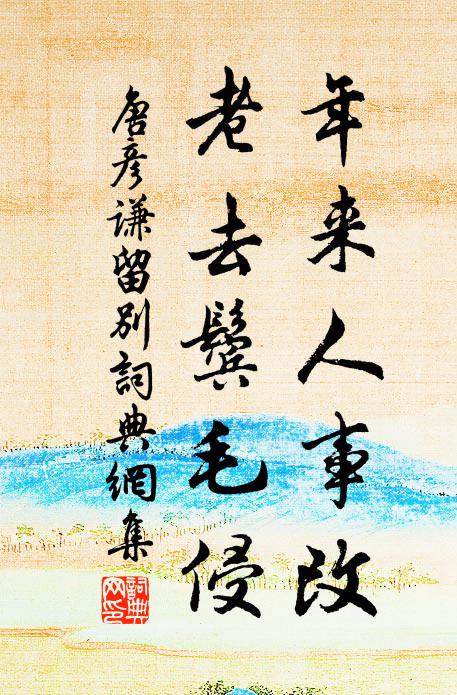 年来人事改
老去鬓毛侵
唐彥谦留别詞典網集